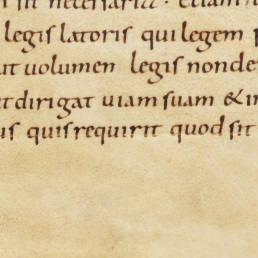 sit necessaria · etiam
legis latoris qui legem
ut uolumen legis nonde
et dirigat uiam suam & in
us quis requirit quod sit